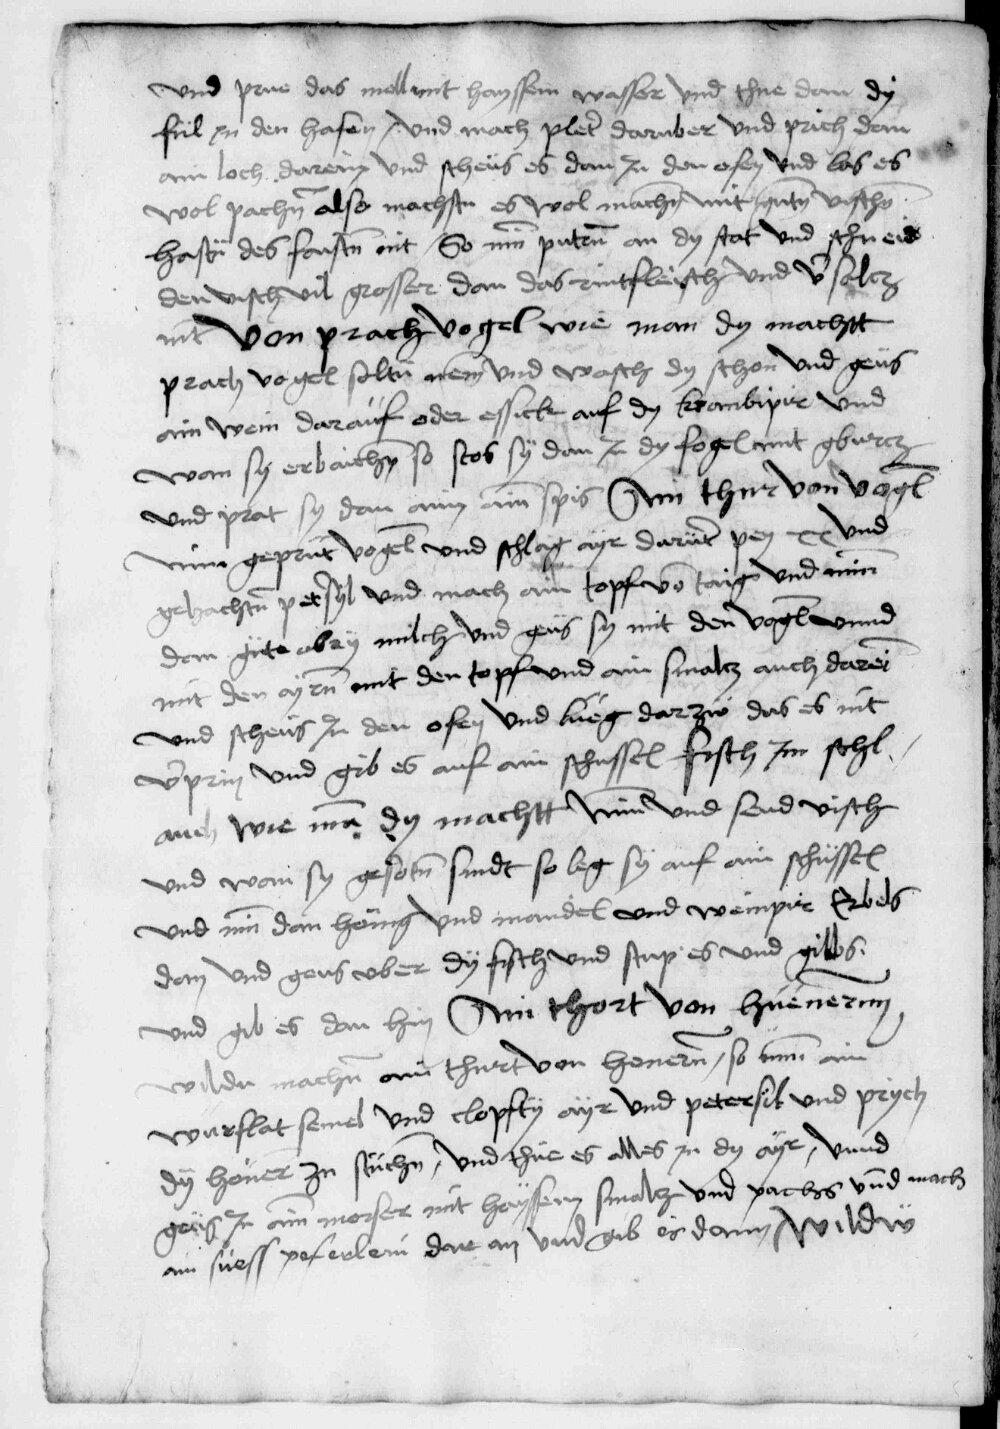 vnd prue das mell mit hayssem wasser vnd thue dan dy
fül in den hafen / vnd mach pleter daruber vnd prich dan
ain loch darein vnd scheus es dan in den ofen vnd las es
wol pachen also machstu es wol machen mit guten vischen
hastu des faisten nit / So nim putern an dy stat vnd schneid
den visch vil grosser dan das rintfleisch vnd versalcz
nit Von prach vogel wie man dy machtt
prach vogel soltu nem vnd wasch dy schon vnd geus
ain wein darauf oder essick auf dy krambipir vnd
wan sy erbaichen so stos sy dan in dy fogel mit gburcz
vnd prat sy dan ann aim spis Ain thurt von vogel
nim geprut vogel vnd schlag ayr darunter pey xx vnd
gehachten petersyl vnd mach ain topf von taig vnd nim
dan gute milch vnd geus sy mit den vogel vnnd
mit den ayrn mit den topf vnd ain smalcz auch darein
vnd scheus in den ofen vnd lueg darzw das es nit
verprin vnd gib es auf ain schussel fisch in schl /
auch wie man dy machtt Nim vnd seud visch
vnd wan sy gesoten sindt so leg sy auf ain schüssel
vnd nim dan honig vnd mandel vnd weinpir Erbels
dan vnd geus vber dy fisch vnd stup es vnd
vnd gib es dan hin Ain thort von huenernn
wildu machen ain thurt von henern / so nim ain
wurflat semel vnd clopfty ayr vnd petersil vnd prych
dy honer in stuchen / vnd thue es alles in dy ayr / vnnd
geus in ain morser mit hayssem smalcz vnd pachs vnnd mach
ain suess pefferlein dar an vnd gib es dann Wildw